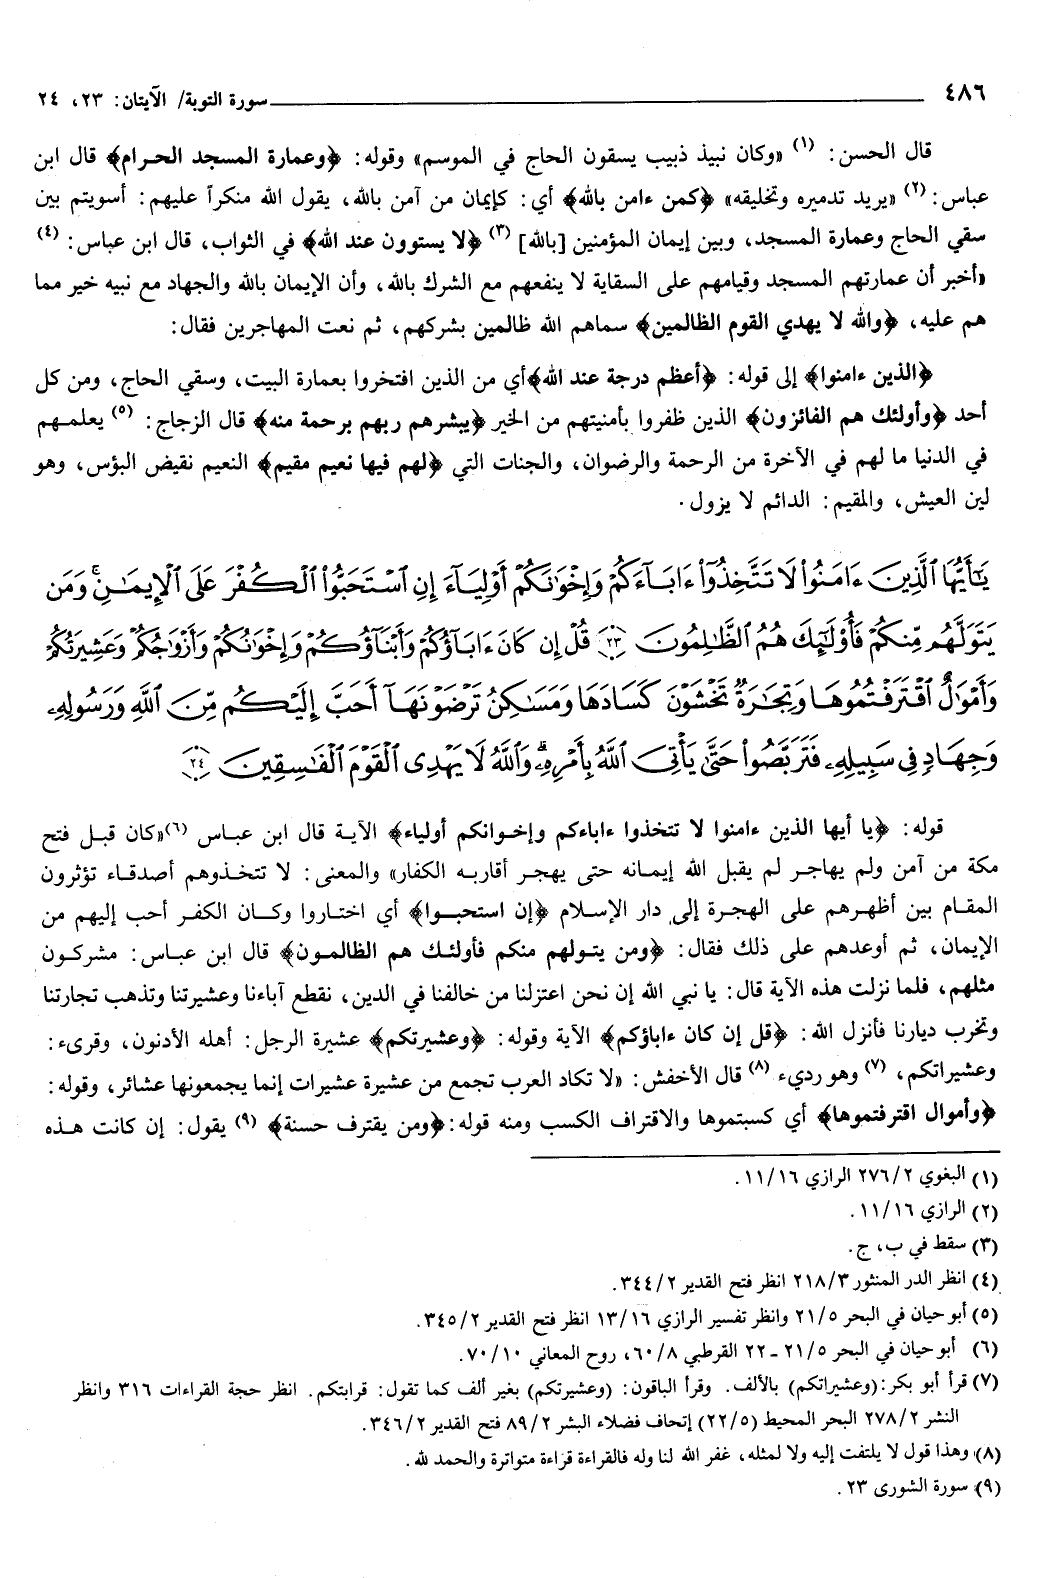 ٤٨٦ سورة التوبة/ الآيتان: ٢٣، ٢٤
قال الحسن: (١) «وكان نبيذ ذبيب يسقون الحاج في الموسم» وقوله: ﴿وعمارة المسجد الحرام﴾ قال ابن
عباس: (٢) «يريد تدميره وتخليقه» ﴿كمن ءامن بالله﴾ أي: كإيمان من آمن بالله، يقول الله منكراً عليهم: أسويتم بين
سقي الحاج وعمارة المسجد، وبين إيمان المؤمنين [بالله] (٣) ﴿لا يستوون عند الله﴾ في الثواب، قال ابن عباس: (٤)
«أخبر أن عمارتهم المسجد وقيامهم على السقاية لا ينفعهم مع الشرك بالله، وأن الإيمان بالله والجهاد مع نبيه خير مما
هم عليه، ﴿والله لا يهدي القوم الظالمين﴾ سماهم الله ظالمين بشركهم، ثم نعت المهاجرين فقال:
﴿الذين ءامنوا﴾ إلى قوله: ﴿أعظم درجة عند الله﴾أي من الذين افتخروا بعمارة البيت، وسقي الحاج، ومن كل
أحد ﴿وأولئك هم الفائزون﴾ الذين ظفروا بأمنيتهم من الخير ﴿يبشرهم ربهم برحمة منه﴾ قال الزجاج: (٥) يعلمهم
في الدنيا ما لهم في الآخرة من الرحمة والرضوان، والجنات التي ﴿لهم فيها نعيم مقيم﴾ النعيم نقيض البؤس، وهو
لين العيش، والمقيم: الدائم لا يزول.
يَٰٓأَيُّهَا ٱلَّذِينَ ءَامَنُوا۟ لَا تَتَّخِذُوٓا۟ ءَابَآءَكُمْ وَإِخْوَٰنَكُمْ أَوْلِيَآءَ إِنِ ٱسْتَحَبُّوا۟ ٱلْكُفْرَ عَلَى ٱلْإِيمَٰنِ ۚ وَمَن
يَتَوَلَّهُم مِّنكُمْ فَأُو۟لَٰٓئِكَ هُمُ ٱلظَّٰلِمُونَ ٢٣ قُلْ إِن كَانَ ءَابَآؤُكُمْ وَأَبْنَآؤُكُمْ وَإِخْوَٰنُكُمْ وَأَزْوَٰجُكُمْ وَعَشِيرَتُكُمْ
وَأَمْوَٰلٌ ٱقْتَرَفْتُمُوهَا وَتِجَٰرَةٌ تَخْشَوْنَ كَسَادَهَا وَمَسَٰكِنُ تَرْضَوْنَهَآ أَحَبَّ إِلَيْكُم مِّنَ ٱللَّهِ وَرَسُولِهِۦ
وَجِهَادٍ فِى سَبِيلِهِۦ فَتَرَبَّصُوا۟ حَتَّىٰ يَأْتِىَ ٱللَّهُ بِأَمْرِهِۦ ۗ وَٱللَّهُ لَا يَهْدِى ٱلْقَوْمَ ٱلْفَٰسِقِينَ ٢٤
قوله: ﴿يا أيها الذين ءامنوا لا تتخذوا ءاباءكم وإخوانكم أولياء﴾ الآية قال ابن عباس (٦)«كان قبل فتح
مكة من آمن ولم يهاجر لم يقبل الله إيمانه حتى يهجر أقاربه الكفار» والمعنى: لا تتخذوهم أصدقاء تؤثرون
المقام بين أظهرهم على الهجرة إلى دار الإسلام ﴿إن استحبوا﴾ أي اختاروا وكان الكفر أحب إليهم من
الإيمان، ثم أوعدهم على ذلك فقال: ﴿ومن يتولهم منكم فأولئك هم الظالمون﴾ قال ابن عباس: مشركون
مثلهم، فلما نزلت هذه الآية قال: يا نبي الله إن نحن اعتزلنا من خالفنا في الدين، نقطع آباءنا وعشيرتنا وتذهب تجارتنا
وتخرب ديارنا فأنزل الله: ﴿قل إن كان ءاباؤكم﴾ الآية وقوله: ﴿وعشيرتكم﴾ عشيرة الرجل: أهله الأدنون، وقرىء:
وعشيراتكم، (٧) وهو رديء (٨) قال الأخفش: «لا تكاد العرب تجمع من عشيرة عشيرات إنما يجمعونها عشائر، وقوله:
﴿وأموال اقترفتموها﴾ أي كسبتموها والاقتراف الكسب ومنه قوله:﴿ومن يقترف حسنة﴾ (٩) يقول: إن كانت هذه
(١) البغوي ٢٧٦/٢ الرازي ١١/١٦.
(٢) الرازي ١١/١٦.
(٣) سقط في ب، ج.
(٤) انظر الدر المنثور ٢١٨/٣ انظر فتح القدير ٣٤٤/٢.
(٥) أبو حيان في البحر ٢١/٥ وانظر تفسير الرازي ١٣/١٦ انظر فتح القدير ٣٤٥/٢.
(٦) أبو حيان في البحر ٢١/٥ - ٢٢ القرطبي ٦٠/٨، روح المعاني ٧٠/١٠.
(٧) قرأ أبو بكر: (وعشيراتكم) بالألف. وقرأ الباقون: (وعشيرتكم) بغير ألف كما تقول: قرابتكم. انظر حجة القراءات ٣١٦ وانظر
النشر ٢٧٨/٢ البحر المحيط (٢٢/٥) إتحاف فضلاء البشر ٨٩/٢ فتح القدير ٣٤٦/٢.
(٨) وهذا قول لا يلتفت إليه ولا لمثله، غفر الله لنا وله فالقراءة قزاءة متواترة والحمد لله.
(٩) سورة الشورى ٢٣.